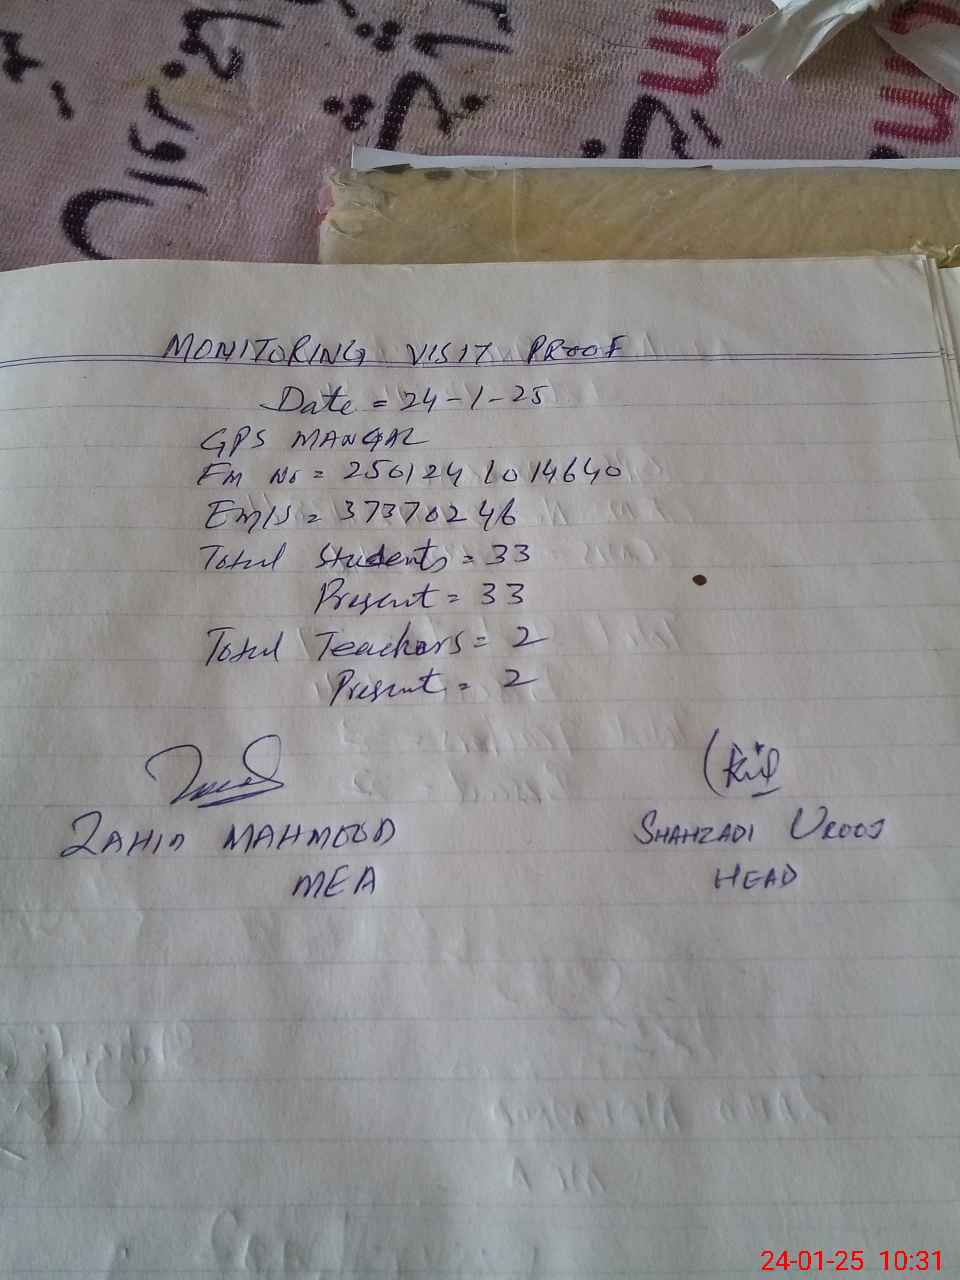 MONITORING VISIT PROOF
Date = 24-1-25
GPS MANGAL
Fm No = 250124 1014640
EMIS = 37370246
Total Students = 33
Present = 33
Total Teachers = 2
Present = 2
ZAHID MAHMOOD
MEA
SHAHZADI UROOJ
HEAD
24-01-25 10:31